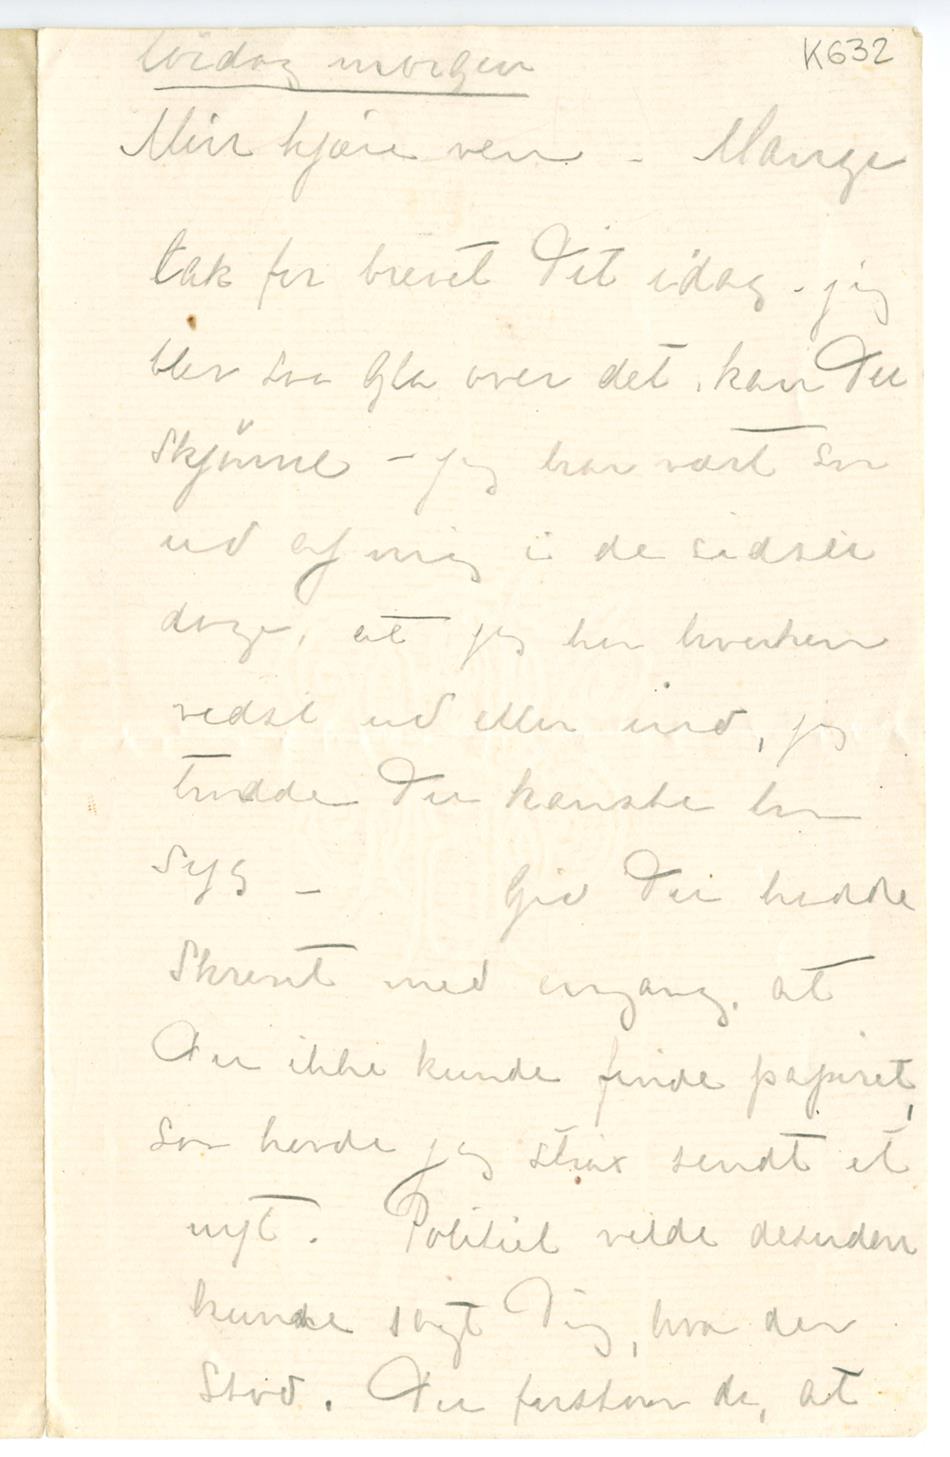 K632
Lördag morgen
Min kjære ven - Mange
tak for brevet Dit idag - jeg
blev saa gla over det, kan Du
skjønne - jeg har vært saa
ud af mig i de sidste
dage, at jeg har hverken
vidst ud eller ind, jeg
trodde Du kanske var
syg - Gid Du hadde
skrevet med engang, at
Du ikke kunde finde papiret,
saa havde jeg strax sendt et
nyt. Politiet vilde desuden
kunne sagt Dig, hva der
stod. Du forstaar da, at